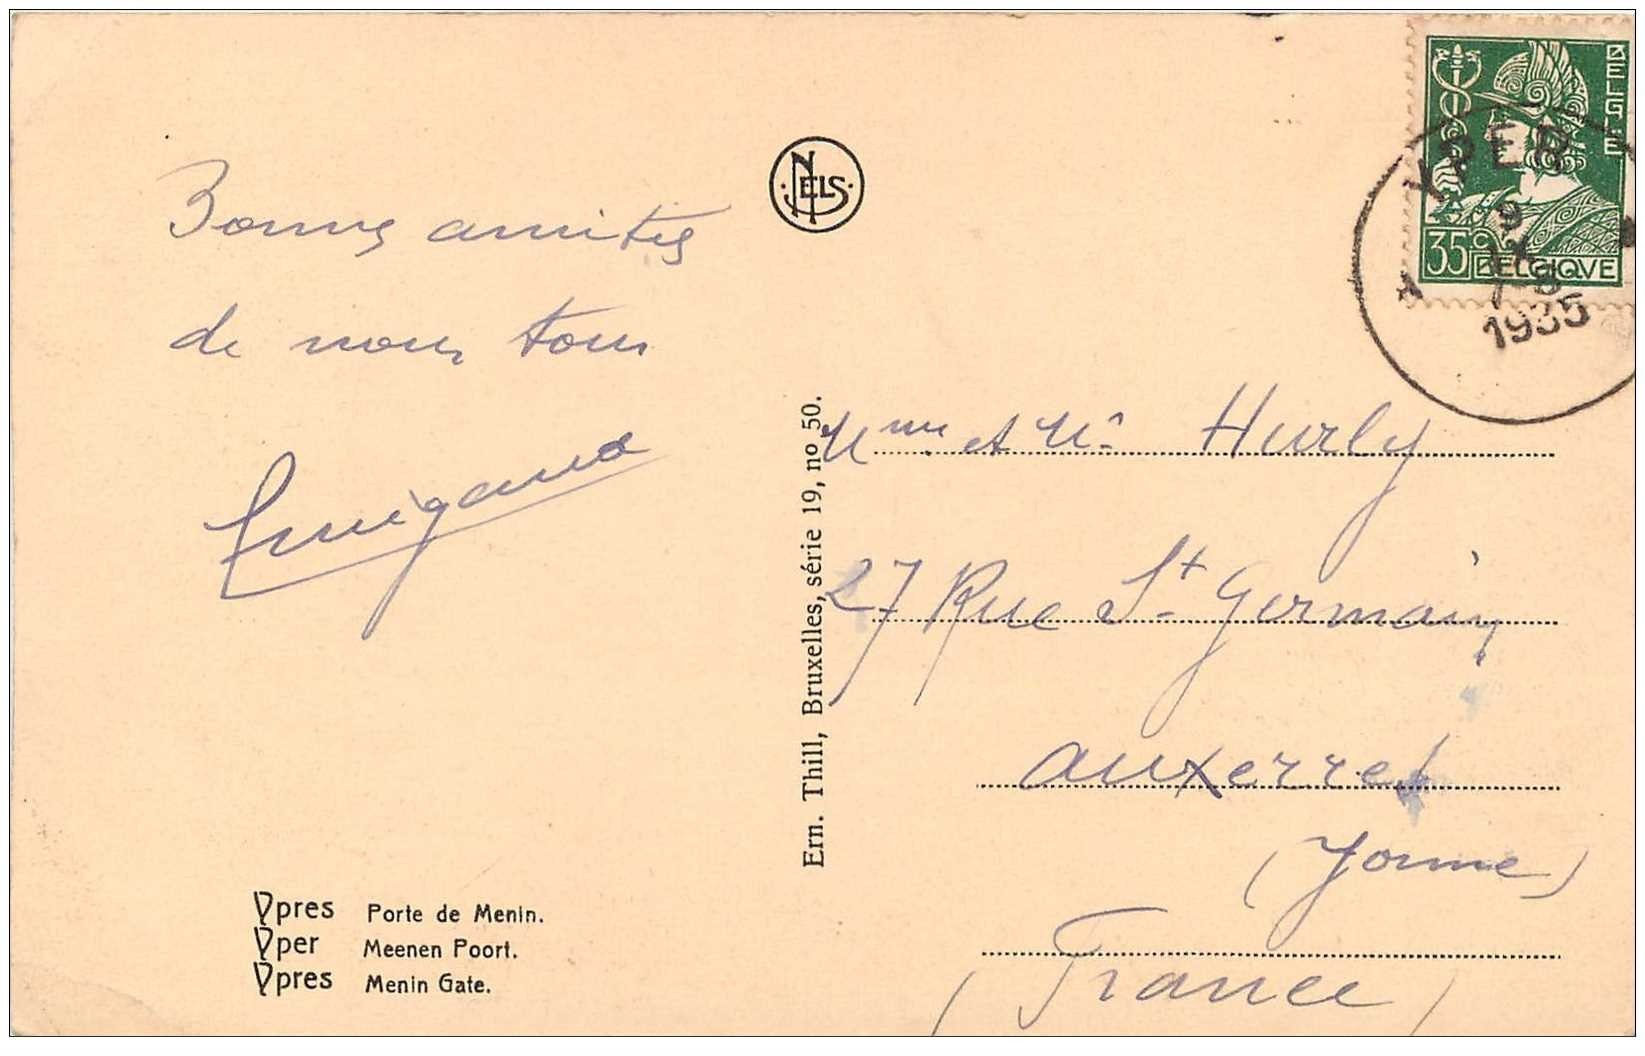 Bonnes amitiés
de nous tous
NELS
BELGIE
35c
BELGIQVE
YPER
9
IX
7-8
1935
Ern. Thill, Bruxelles, série 19, nº 50.
Mme et Mr Hurly
27 Rue St Germain
Auxerre
(Yonne)
(France)
Ypres Porte de Menin.
Yper Meenen Poort.
Ypres Menin Gate.